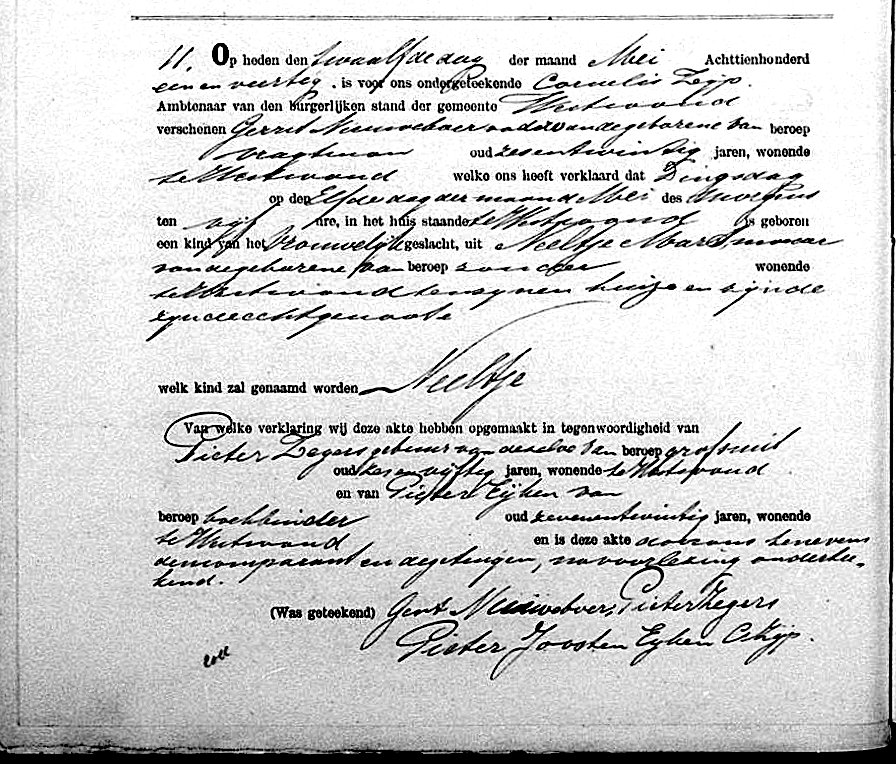 11. Op heden den twaalfde dag der maand Mei Achttienhonderd
een en veertig. is voor ons ondergeteekende Cornelis Zijp.
Ambtenaar van den burgerlijken stand der gemeente Westwoud
verschenen Gerrit Nieuweboer vader van de geborene van beroep
vragtman oud zesentwintig jaren, wonende
te Westwoud welke ons heeft verklaard dat Dingsdag
op den Elfde dag der maand Mei des morgens
ten vijf ure, in het huis staande te Westwoud is geboren
een kind van het Vrouwelijk geslacht, uit Neeltje
van de geborene van beroep zonder wonende
te Westwoud ten zynen huize en zijnde
zijnde echtgenoote
welk kind zal genaamd worden Neeltje
Van welke verklaring wij deze akte hebben opgemaakt in tegenwoordigheid van
Pieter Zegers gebuur van dezelve van beroep grofsmit
oud zes en vijftig jaren, wonende te Westwoud
en van Pieter Eyken van
beroep boekbinder oud zevenentwintig jaren, wonende
te Westwoud en is deze akte door ons benevens
den comparant en de getuigen, na voorlezing onderthe-
kend.
(Was geteekend) Gerrit Nieuweboer, Pieter Zegers
Pieter Joosten Eyken C. Zijp.